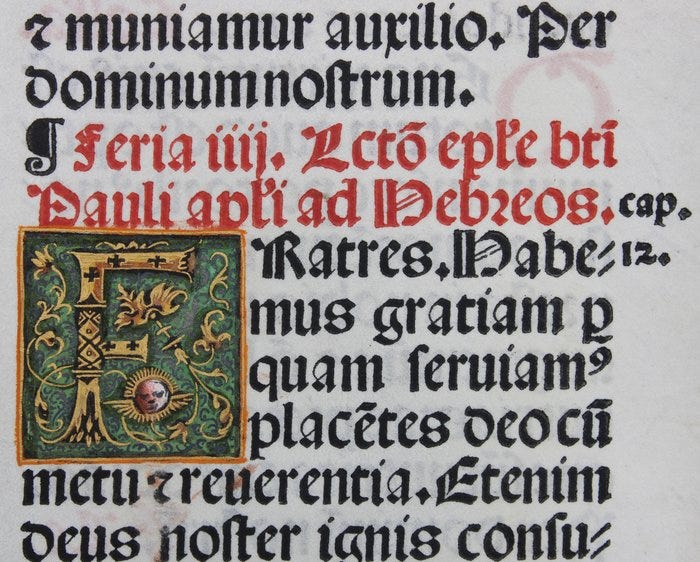 ⁊ muniamur auxilio. Per
dominum noſtrum.
¶ Feria iiij. Lctō epľe btī
Pauli apľi ad Hebreos. cap.
FRatres. Habe⸗ 12.
mus gratiam ꝑ
quam ſeruiamꝰ
placētes deo cū
metu ⁊ reuerentia. Etenim
deus noſter ignis conſu⸗